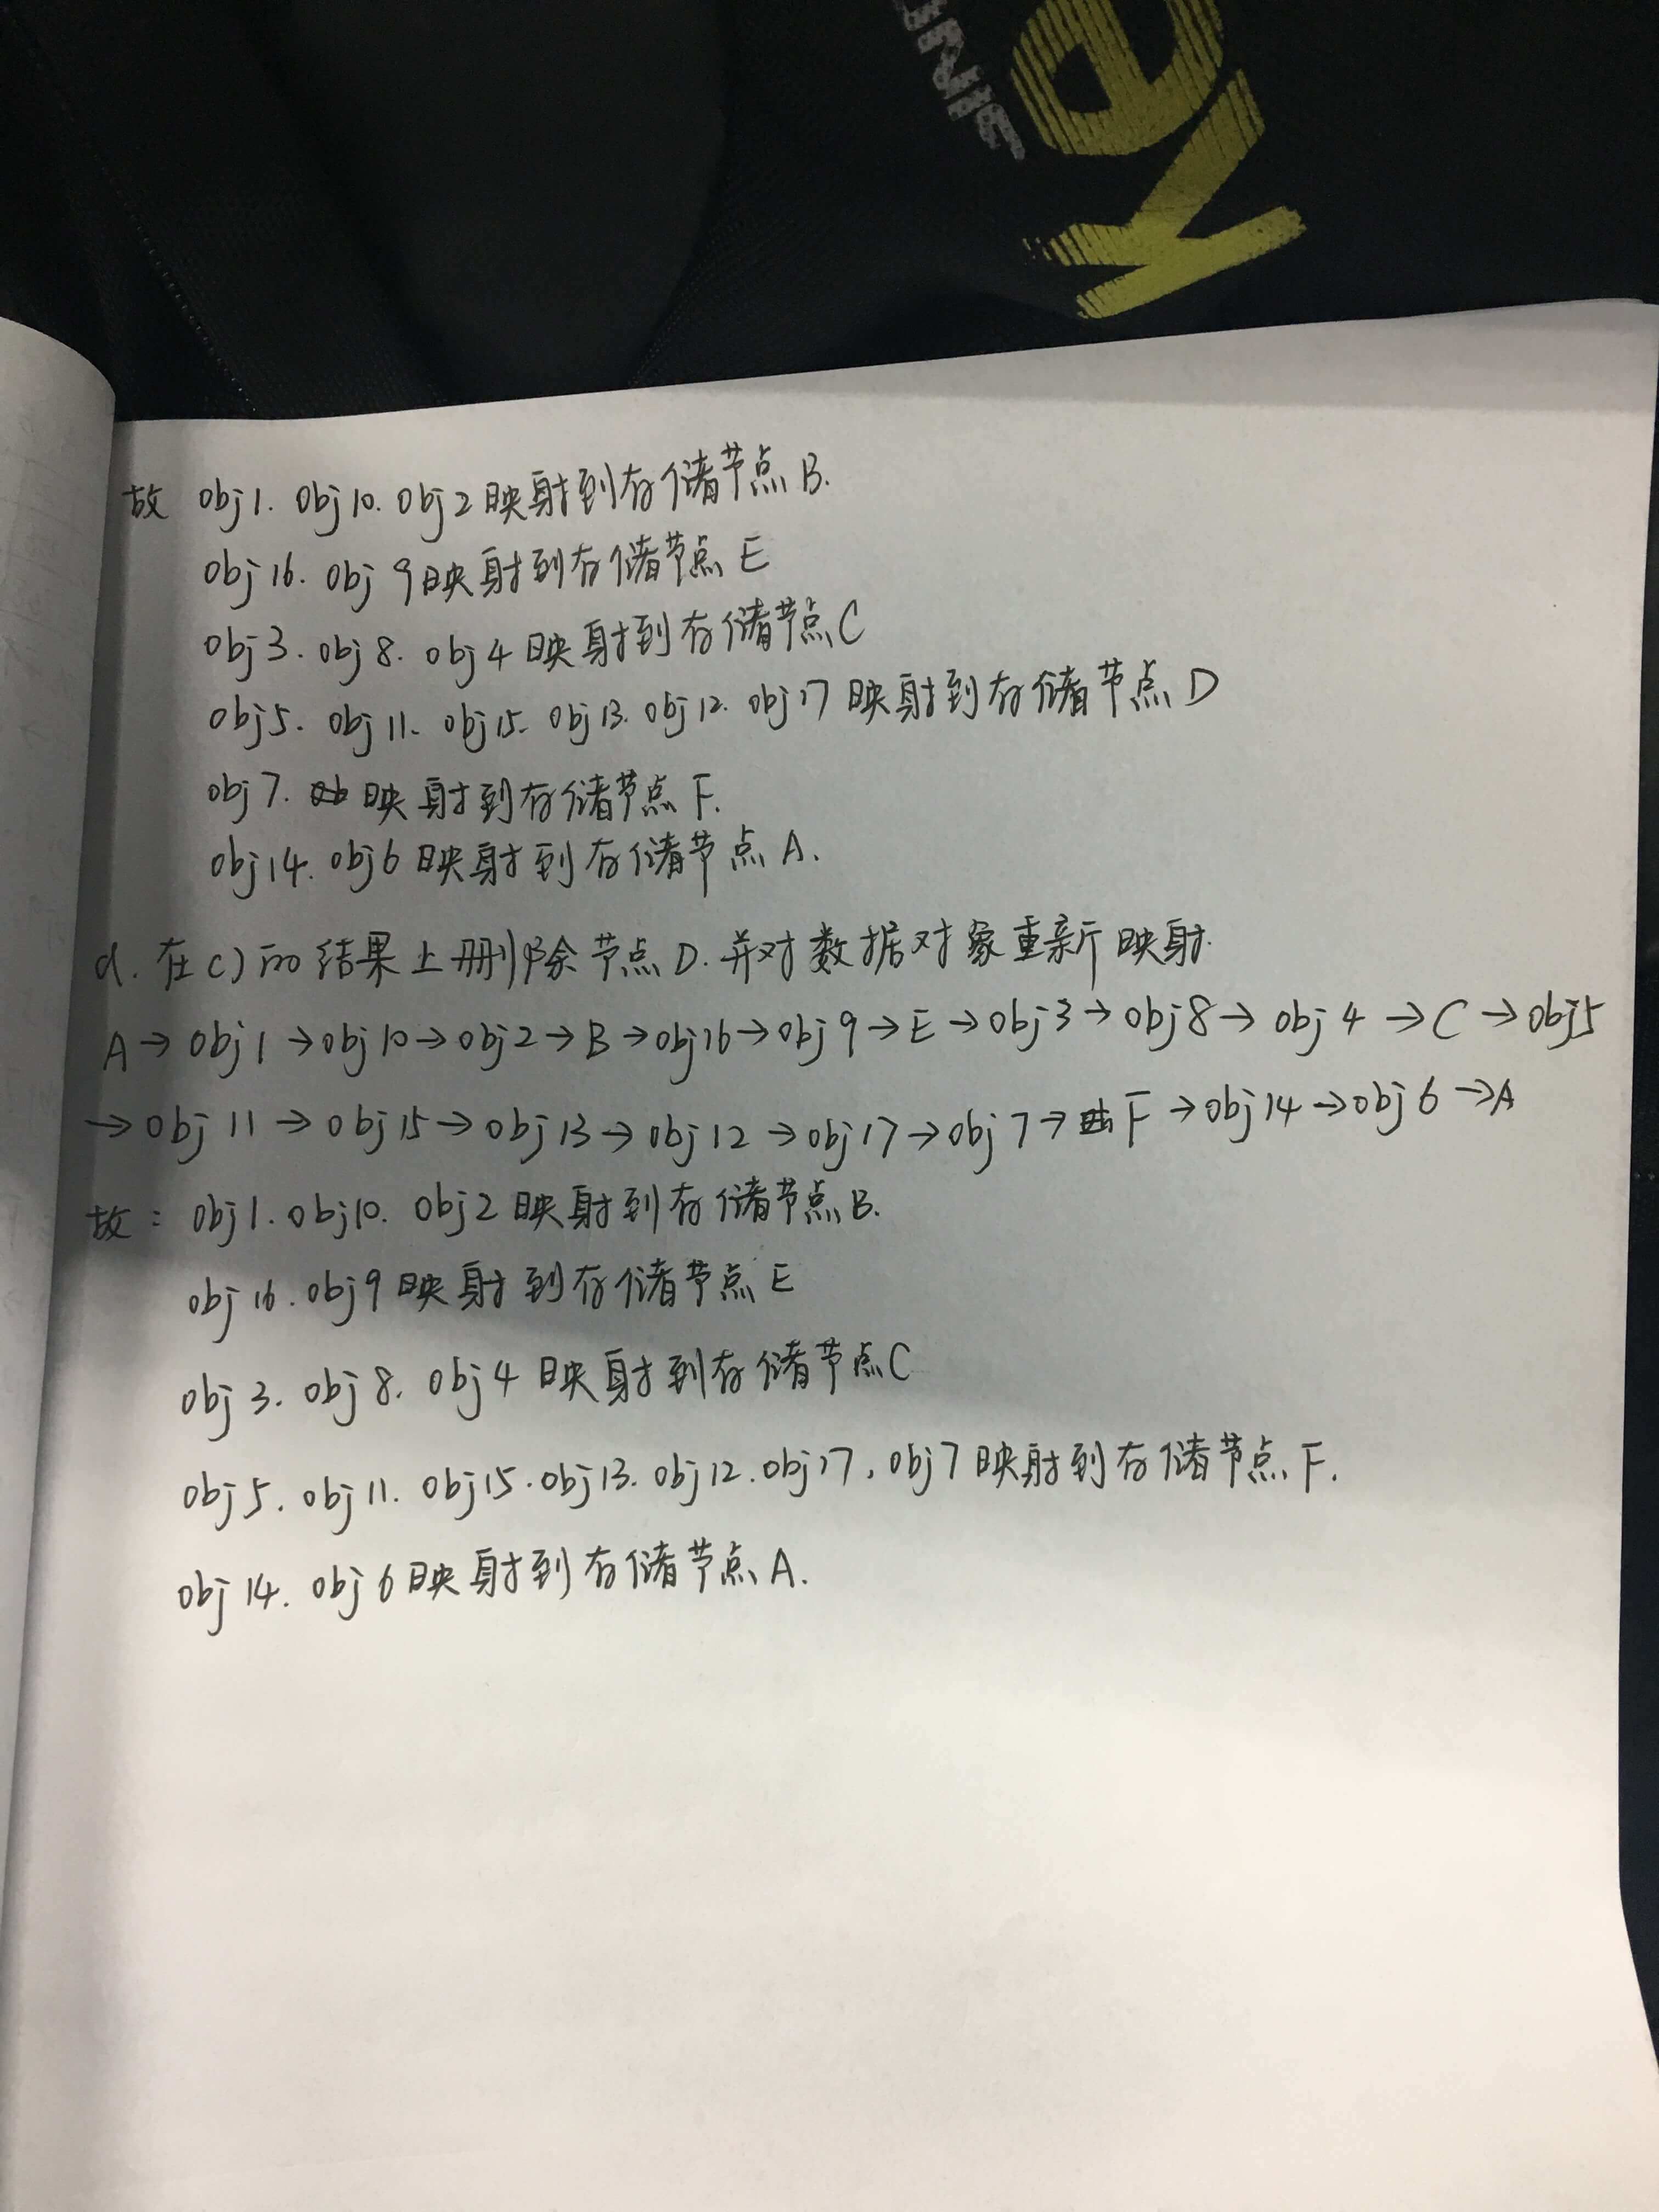 故 obj1. obj10. obj2映射到存储节点B.
obj16. obj9映射到存储节点E
obj3. obj8. obj4映射到存储节点C
obj5. obj11. obj15. obj13. obj12. obj17映射到存储节点D
obj7. 映射到存储节点F.
obj14. obj6映射到存储节点A.
d. 在c)的结果上删除节点D. 并对数据对象重新映射.
A→obj1→obj10→obj2→B→obj16→obj9→E→obj3→obj8→obj4→C→obj5
→obj11→obj15→obj13→obj12→obj17→obj7→F→obj14→obj6→A
故: obj1. obj10. obj2映射到存储节点B.
obj16. obj9映射到存储节点E
obj3. obj8. obj4映射到存储节点C
obj5. obj11. obj15. obj13. obj12. obj17, obj7映射到存储节点F.
obj14. obj6映射到存储节点A.